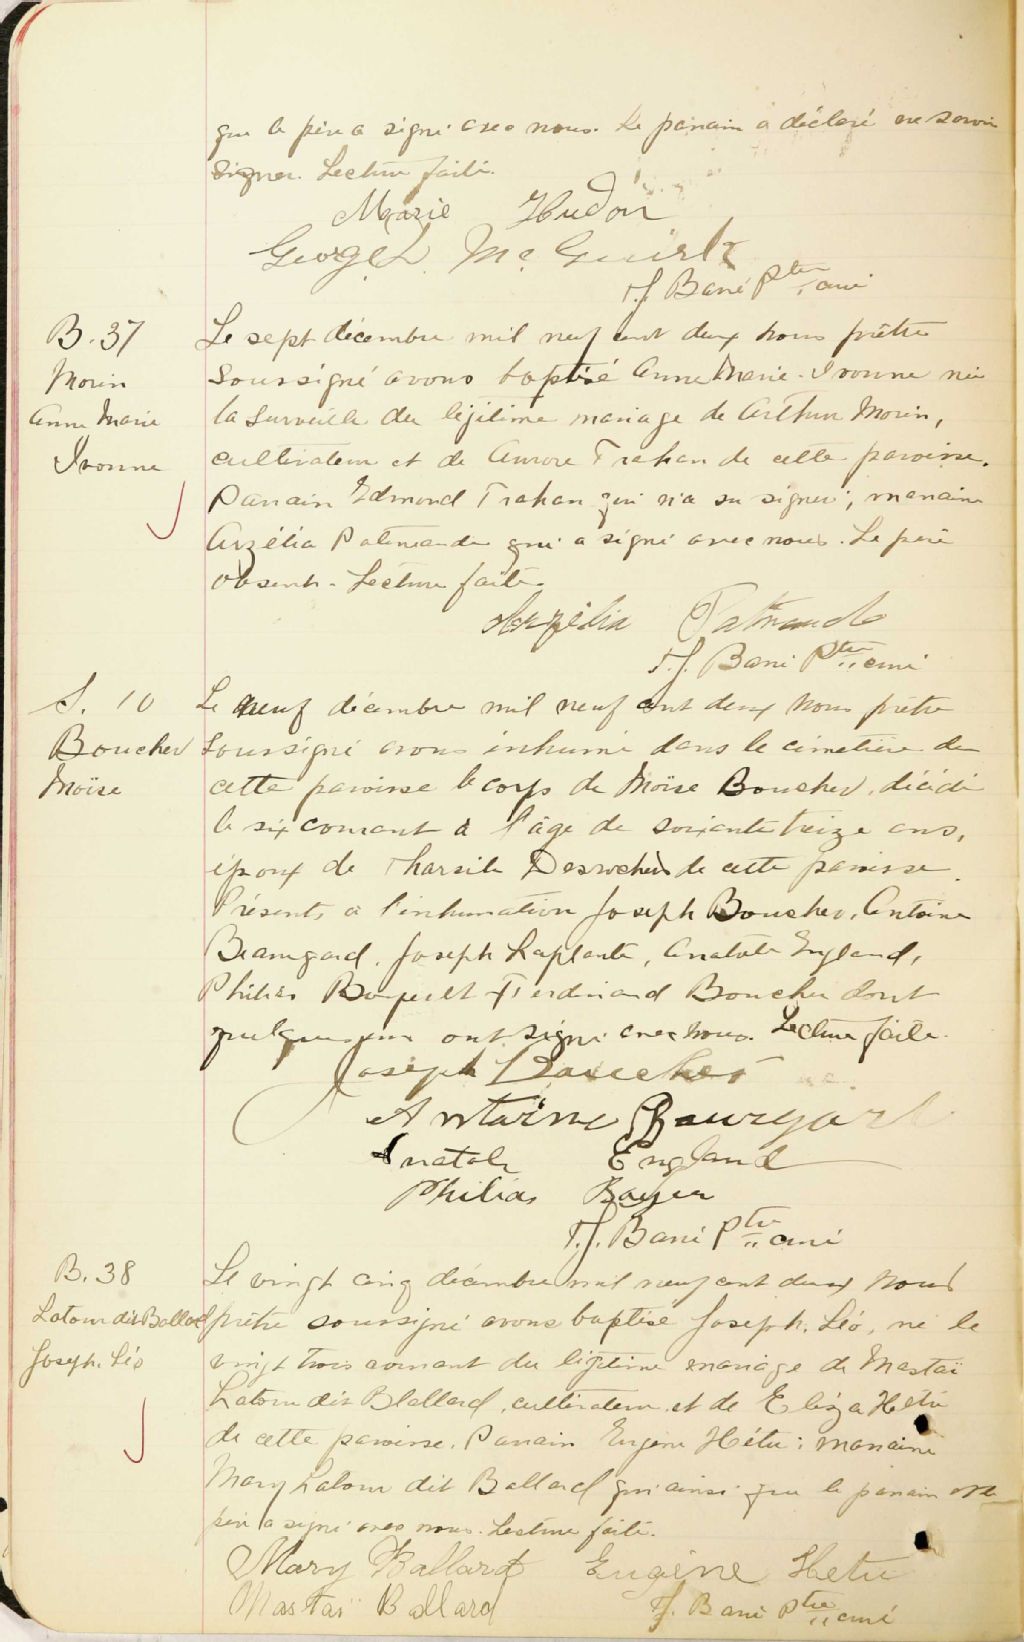 que le père a signé avec nous. Le parrain a déclaré ne savoir
signer. Lecture faite.
Marie Hudon
George Mc Guirk
T. J. Bani Ptre, curé
B. 37
Morin
Anne Marie
Ivonne
Le sept décembre mil neuf cent deux nous prêtre
soussigné avons baptisé Anne Marie-Ivonne née
la surveille du légitime mariage de Arthur Morin,
cultivateur et de Aurore Trahan de cette paroisse.
Parrain Edmond Trahan qui n'a su signer; marraine
Arzélia Patenaude qui a signé avec nous. Le père
absent. Lecture faite.
Arzélia Patnaude
T. J. Bani Ptre curé
S. 10
Boucher
Moïse
Le neuf décembre mil neuf cent deux nous prêtre
soussigné avons inhumé dans le cimetière de
cette paroisse le corps de Moïse Boucher, décédé
le six courant à l'âge de soixante treize ans,
époux de Tharsile Desrochers de cette paroisse.
Présents à l'inhumation Joseph Boucher, Antoine
Beauregard, Joseph Laplante, Anatole England,
Philias & Ferdinand Boucher dont
quelques uns ont signé avec nous. Lecture faite.
Joseph Boucher
Antoine Bauregard
Anatole England
Philias Boyer
T. J. Bani Ptre curé
B. 38
Latour dit Ballard
Joseph Léo
Le vingt cinq décembre mil neuf cent deux nous
prêtre soussigné avons baptisé Joseph, Léo, né le
vingt trois courant du légitime mariage de Mastaï
Latour dit Ballard, cultivateur et de Eliza Hétu
de cette paroisse. Parrain Eugène Hétu; marraine
Mary Latour dit Ballard qui ainsi que le parrain et le
père a signé avec nous. Lecture faite.
Mary Ballard Eugène Hetu
Mastaï Ballard T. J. Bani Ptre curé